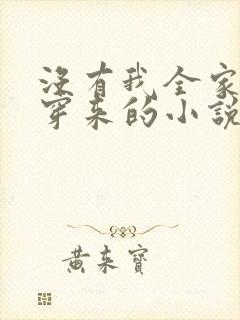 没有我全家
穿来的小說
黄来寶